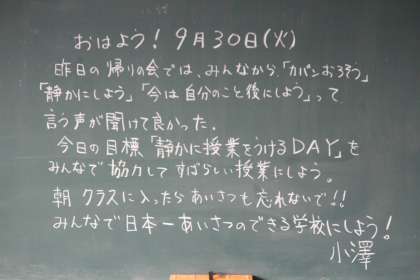 おはよう！9月30日(火)
昨日の帰りの会では、みんなから「カバンおろそう」
「静かにしよう」「今は自分のこと後にしよう」って
言う声が聞けて良かった。
今日の目標「静かに授業をうけるDAY」を
みんなで協力してすばらしい授業にしよう。
朝クラスに入ったらあいさつも忘れないで!!
みんなで日本一あいさつのできる学校にしよう！
小澤